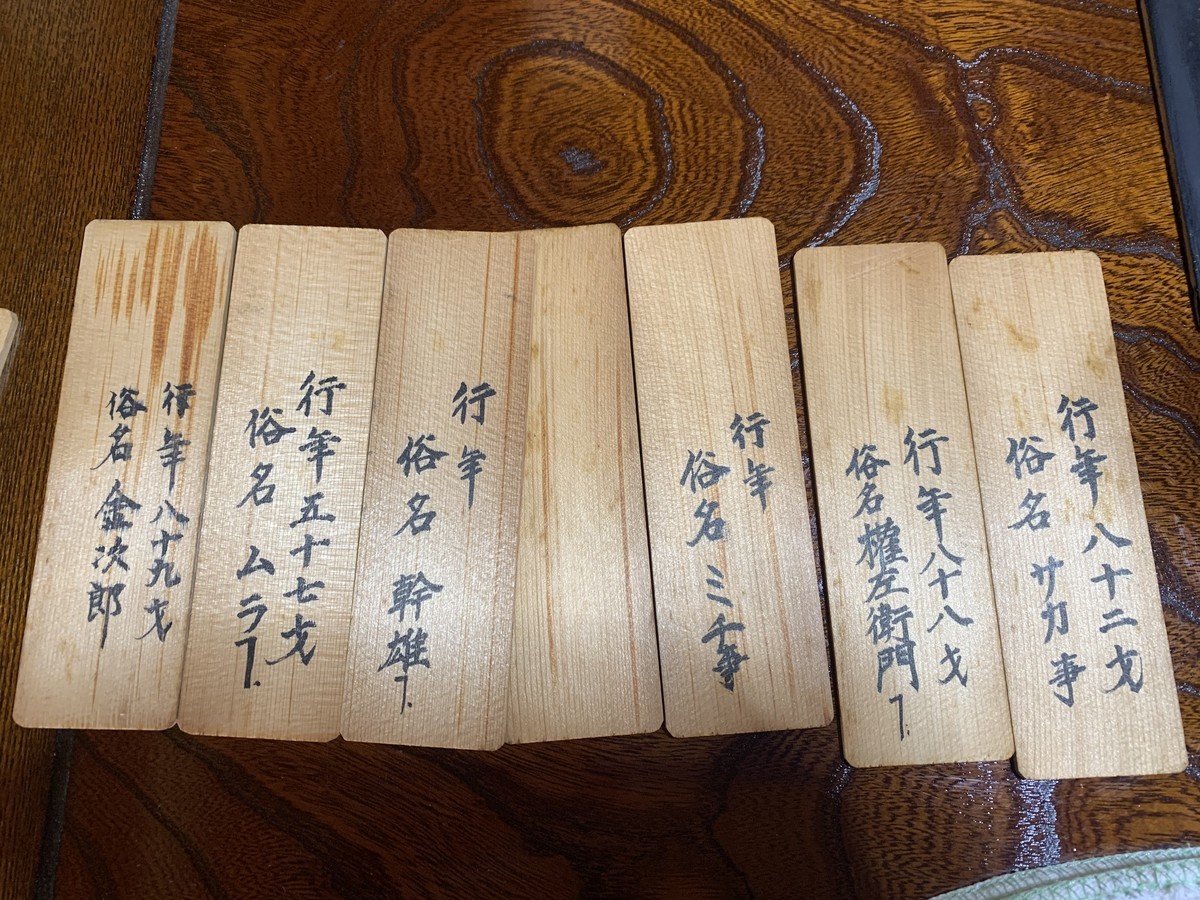 行年八十二才
俗名サカ事
行年八十八才
俗名權左衛門ヿ
行年
俗名ミチ事
行年
俗名 幹雄ヿ
行年五十七才
俗名 ムラヿ
行年八十九才
俗名 金次郎